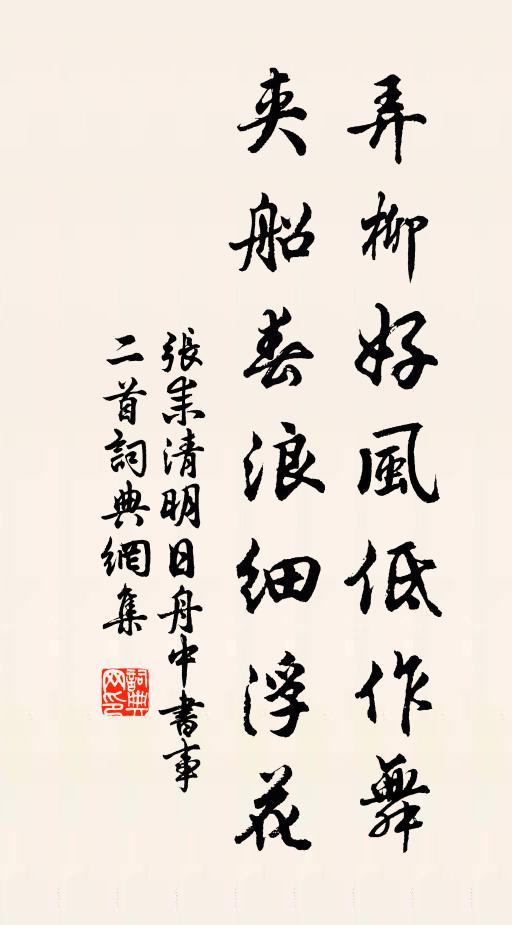 弄柳好風低作舞
夾船春浪細浮花
張耒清明日舟中書事
二首詞典網集
詞典网印